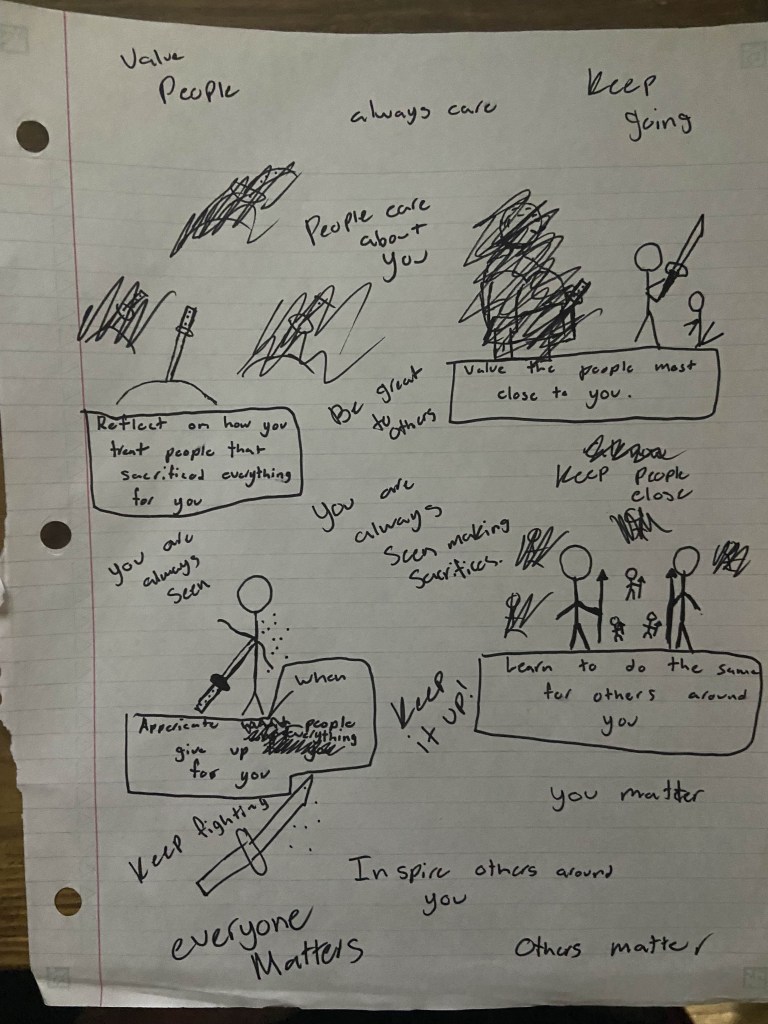 Value
People
always care
Keep
going
People care
about
you
Value the people most
close to you.
Be great
to others
Reflect on how you
treat people that
sacrificed everything
for you
Keep people
close
You are
always
seen making
sacrifices.
you are
always
seen
when
Appericate people
everything
give up
for you
Keep
it up!
Learn to do the same
for others around
you
you matter
Keep fighting
Inspire others around
you
everyone
Matters
Others matter